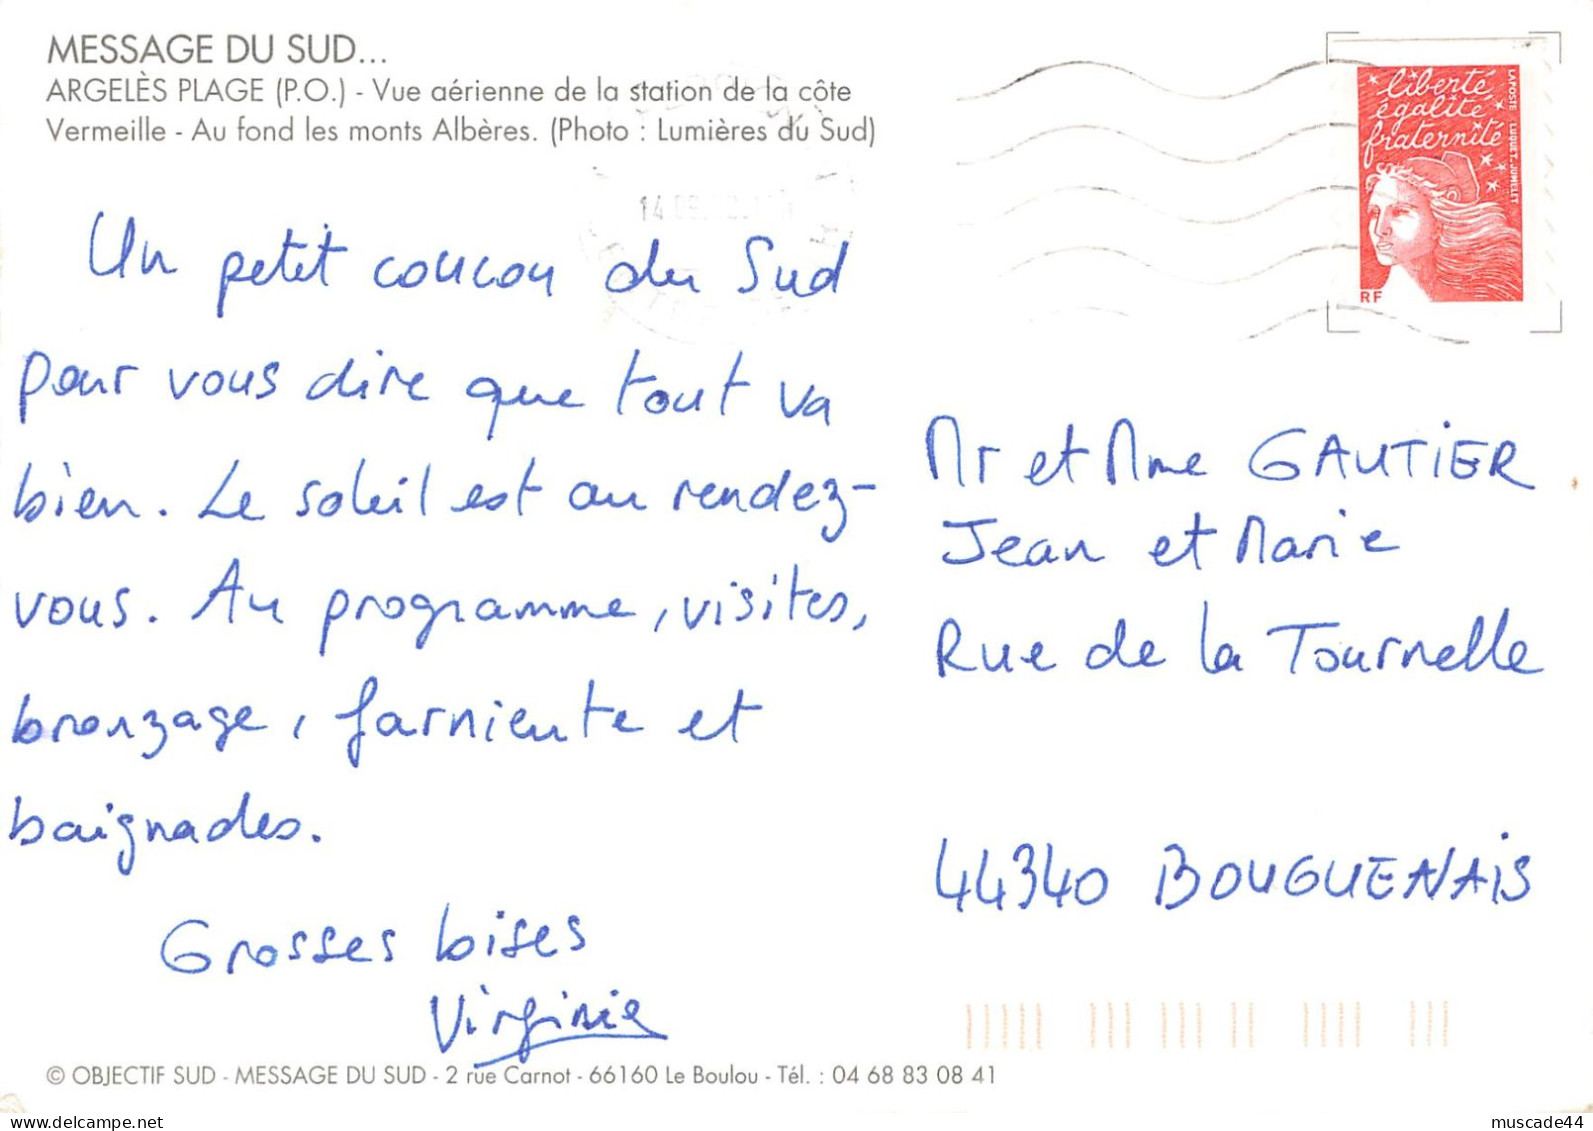 MESSAGE DU SUD...
ARGELÈS PLAGE (P.O.) - Vue aérienne de la station de la côte
Vermeille - Au fond les monts Albères. (Photo : Lumières du Sud)
liberté
égalité
fraternité
LA POSTE LUQUET. JUMELET
RF
Un petit coucou du Sud
pour vous dire que tout va
bien. Le soleil est au rendez-
vous. Au programme, visites,
bronzage, farniente et
baignades.
Grosses bises
Virginie
Mr et Mme GAUTIER
Jean et Marie
Rue de la Tournelle
44340 BOUGUENAIS
© OBJECTIF SUD - MESSAGE DU SUD - 2 rue Carnot - 66160 Le Boulou - Tél. : 04 68 83 08 41
muscade44